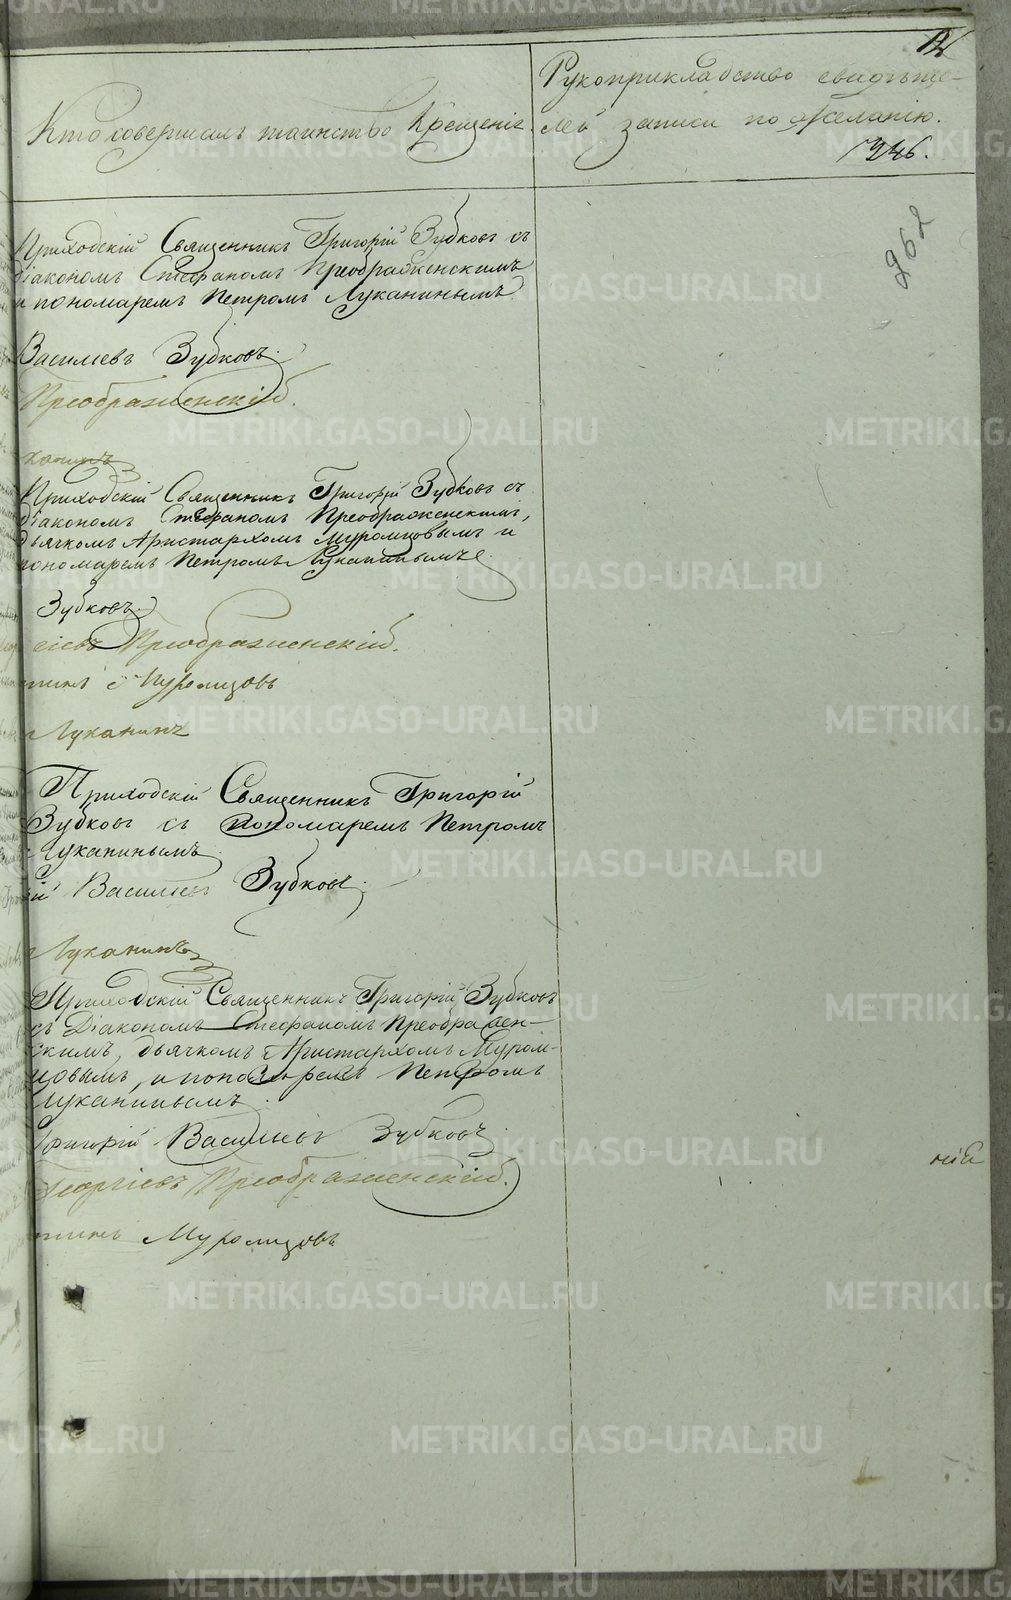 12
Кто совершалъ таинство Крещенія.
Рукоприкладство свидѣте-
лей записи по желанію.
1246.
262
Приходскій Священникъ Григорій Зубковъ съ
діакономъ Стефаномъ Преображенскимъ
и пономаремъ Петромъ Луканинымъ
Васильевъ Зубковъ.
Преображенскій.
канинъ
Приходскій Священникъ Григорій Зубковъ съ
діакономъ Стефаномъ Преображенскимъ,
дьячкомъ Аристархомъ Муромцовымъ и
пономаремъ Петромъ Луканинымъ
Зубковъ.
гіевъ Преображенскій.
Муромцовъ
Луканинъ
Приходскій Священникъ Григорій
Зубковъ съ Пономаремъ Петромъ
Луканинымъ
ій Васильевъ Зубковъ.
Луканинъ
Приходскій Священникъ Григорій Зубковъ
съ Діакономъ Стефаномъ Преображен-
скимъ, дьячкомъ Аристархомъ Муром-
цовымъ, и пономаремъ Петромъ
Луканинымъ.
Григорій Васильевъ Зубковъ.
Георгіевъ Преображенскій.
Муромцовъ
нія
METRIKI.GASO-URAL.RU